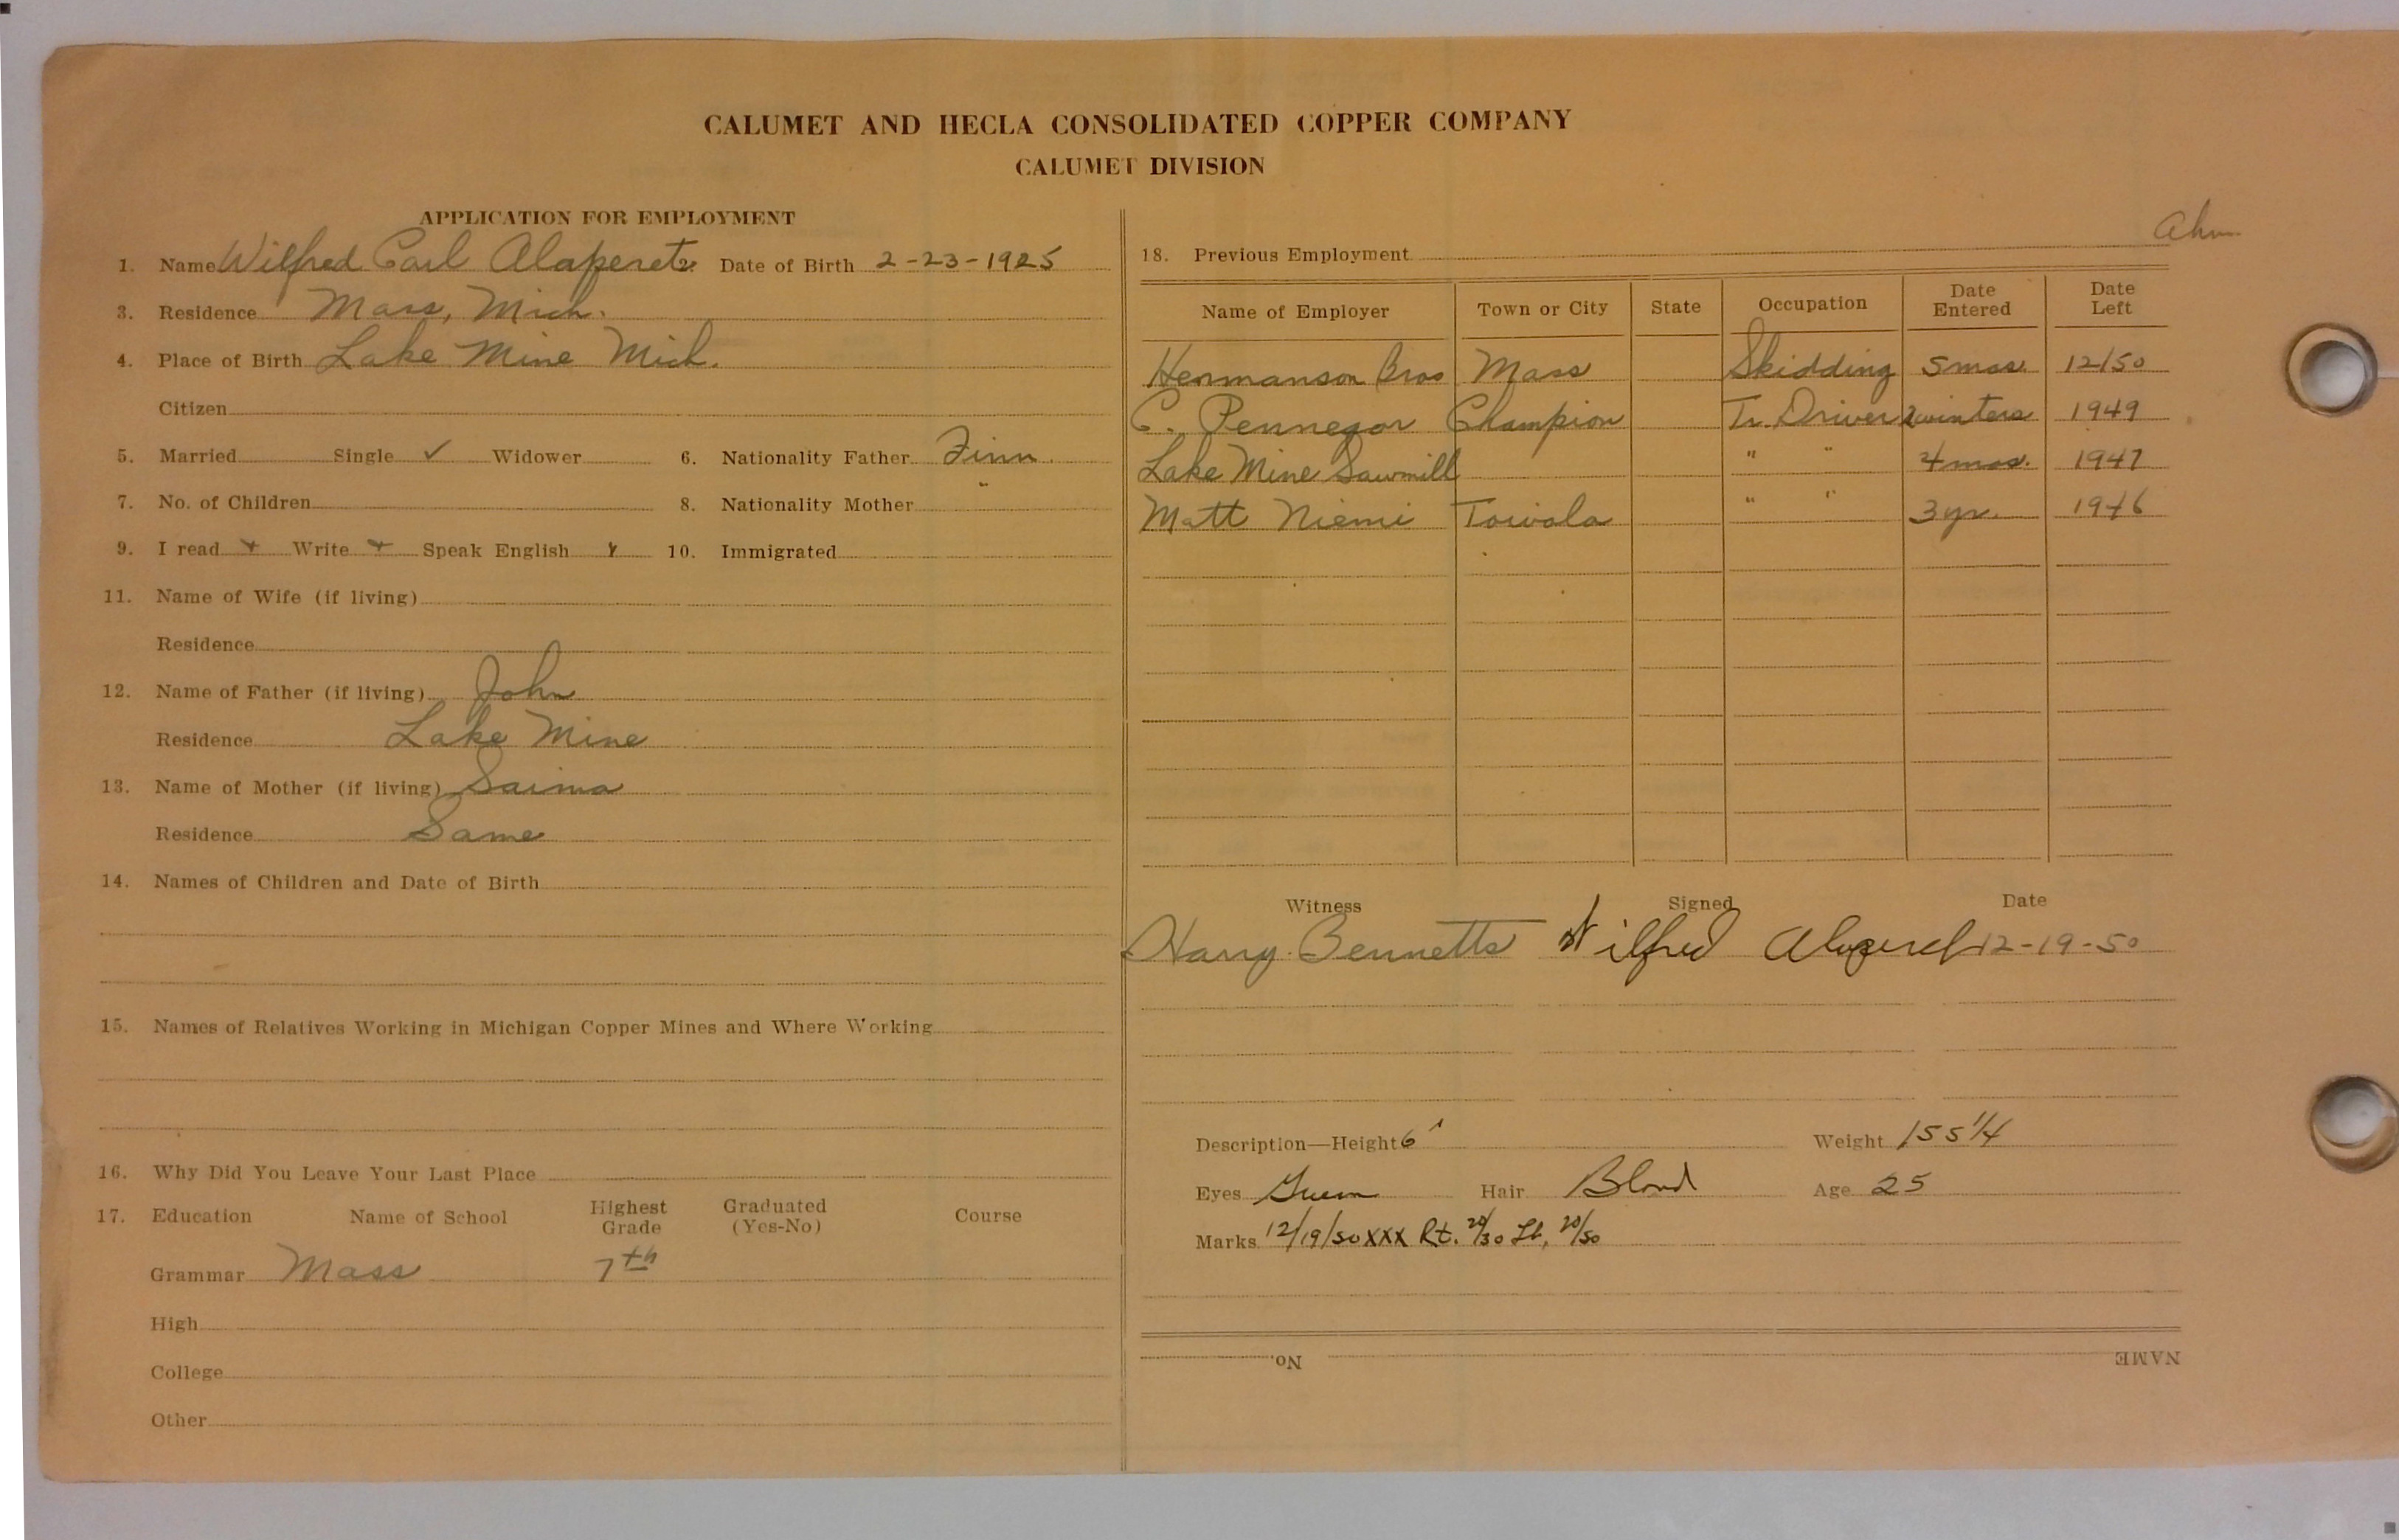 CALUMET AND HECLA CONSOLIDATED COPPER COMPANY
CALUMET DIVISION
APPLICATION FOR EMPLOYMENT
1. Name Wilfred Carl Alaperet 2. Date of Birth 2-23-1925
3. Residence Mass, Mich.
4. Place of Birth Lake Mine Mich.
Citizen
5. Married Single ✓ Widower 6. Nationality Father Finn
7. No. of Children 8. Nationality Mother "
9. I read + Write + Speak English Y 10. Immigrated
11. Name of Wife (if living)
Residence
12. Name of Father (if living) John
Residence Lake Mine
13. Name of Mother (if living) Saima
Residence Same
14. Names of Children and Date of Birth
15. Names of Relatives Working in Michigan Copper Mines and Where Working
16. Why Did You Leave Your Last Place
17. Education Name of School Highest Grade Graduated (Yes-No) Course
Grammar Mass 7th
High
College
Other
18. Previous Employment
Name of Employer Town or City State Occupation Date Entered Date Left
Hermanson Bros Mass Skidding 5 mos. 12/50
C. Pennegor Champion Tr. Driver 2 winters 1949
Lake Mine Sawmill " " 4 mos. 1947
Matt Niemi Toivola " " 3 yr. 1946
Witness Signed Date
Harry Bennetts Wilfred 12-19-50
Description—Height 6' Weight 155 1/4
Eyes Green Hair Blond Age 25
Marks 12/19/50 XXX Rt. 20/30 Lt. 20/50
No. NAME